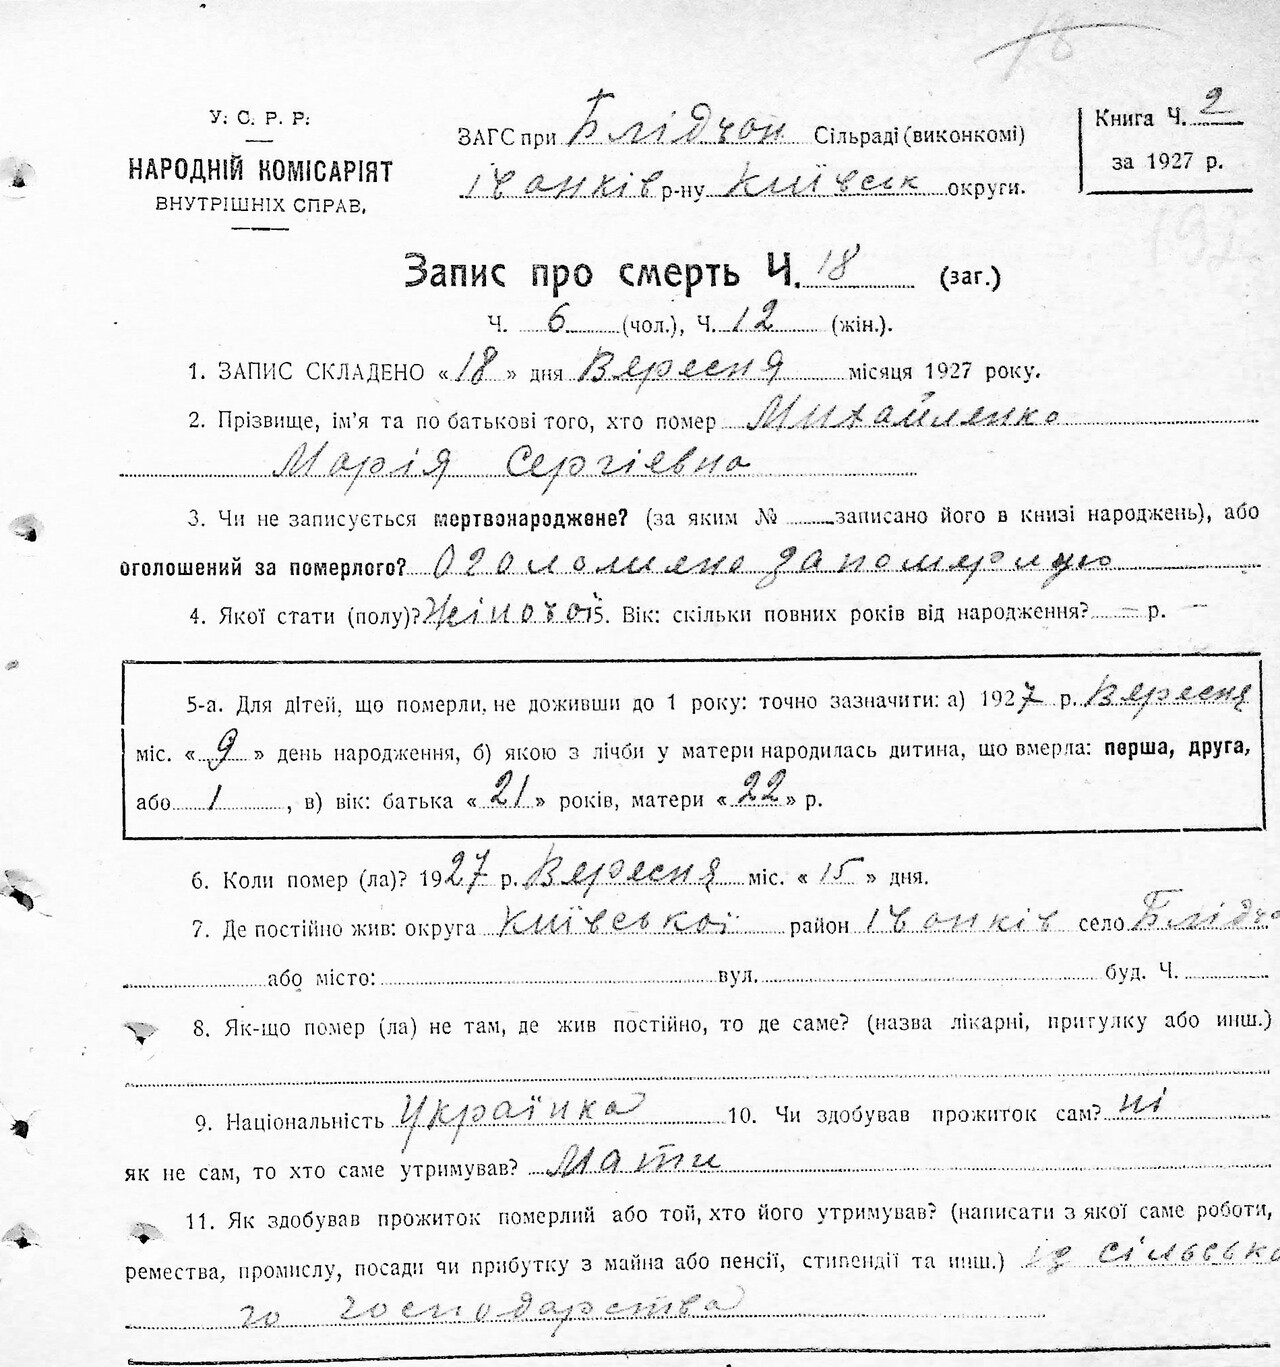 18
У. С. Р. Р.
НАРОДНІЙ КОМІСАРІЯТ
ВНУТРІШНІХ СПРАВ,
ЗАГС при Блідчан Сільраді (виконкомі)
Іванків р-ну Київськ округи.
Книга Ч. 2
за 1927 р.
192
Запис про смерть Ч. 18 (заг.)
Ч. 6 (чол.), Ч. 12 (жін.).
1. ЗАПИС СКЛАДЕНО « 18 » дня Вересня місяця 1927 року.
2. Прізвище, ім'я та по батькові того, хто помер Михайленко
Марія Сергіевна
3. Чи не записується мертвонароджене? (за яким № записано його в книзі народжень), або
оголошений за померлого? Оголошено за померлую
4. Якої статі (полу)? Жіночої 5. Вік: скільки повних років від народження? — р. —
5-а. Для дітей, що померли, не доживши до 1 року: точно зазначити: а) 1927 р. Вересня
міс. « 9 » день народження, б) якою з лічби у матери народилась дитина, що вмерла: перша, друга,
або 1 , в) вік: батька « 21 » років, матери « 22 » р.
6. Коли помер (ла)? 1927 р. Вересня міс. « 15 » дня.
7. Де постійно жив: округа Київської район Іванків село Блідча
або місто: вул. буд. Ч.
8. Як-що помер (ла) не там, де жив постійно, то де саме? (назва лікарні, притулку або инш.)
9. Національність Українка 10. Чи здобував прожиток сам? ні
як не сам, то хто саме утримував? Мати
11. Як здобував прожиток померлий або той, хто його утримував? (написати з якої саме роботи,
ремества, промислу, посади чи прибутку з майна або пенсії, стипендії та инш.) із сільсько
го господарства